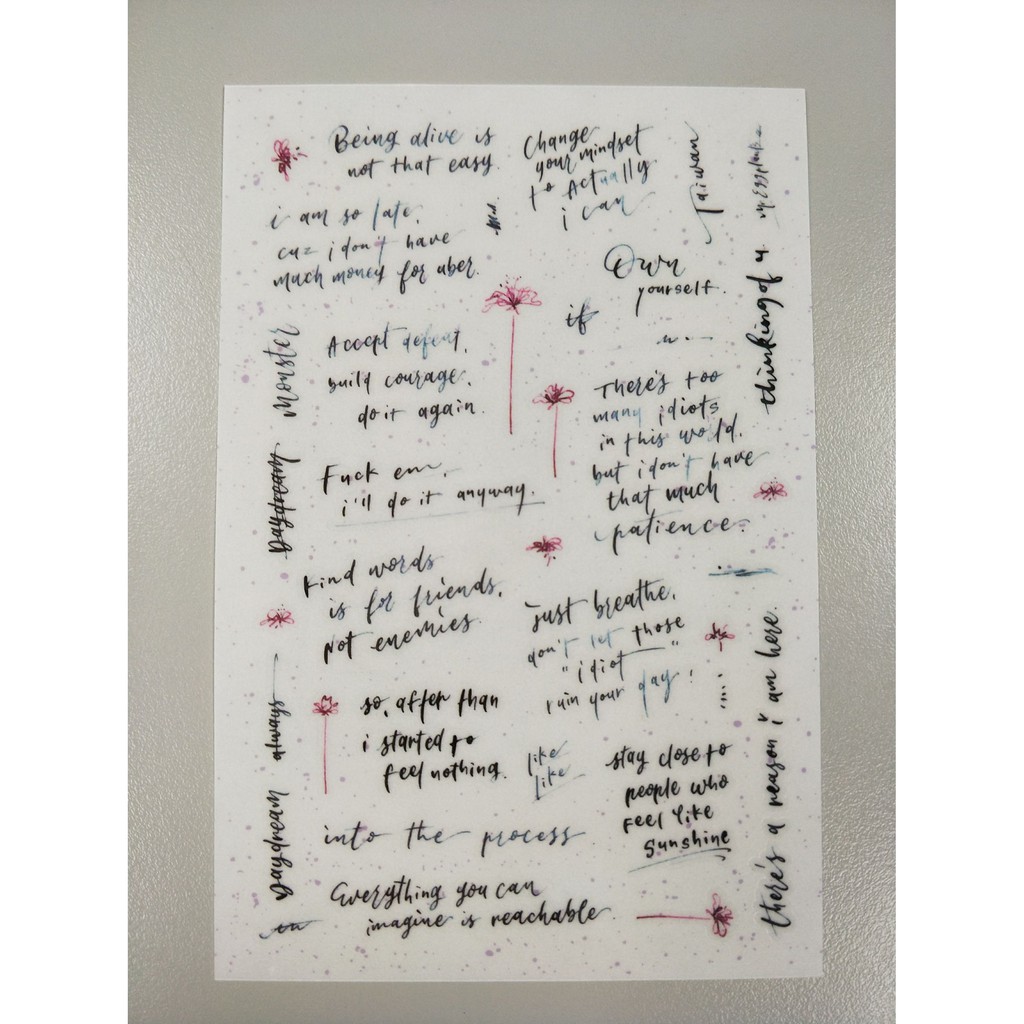 Being alive is
not that easy.
Change
your mindset
to Actually
i can
Taiwan
i am so late,
cuz i don't have
much money for uber.
Own
yourself.
if
thinking of u
Monster
Accept defeat,
build courage,
do it again.
There's too
many idiots
in this world,
but i don't have
that much
patience.
Daydream
Fuck em,
i'll do it anyway.
Kind words
is for friends,
Not enemies.
just breathe,
don't let those
"idiot"
ruin your day!
so, after than
i started to
feel nothing.
like
like
stay close to
people who
feel like
sunshine
there's a reason i am here.
always
Daydream
into the process
Everything you can
imagine is reachable